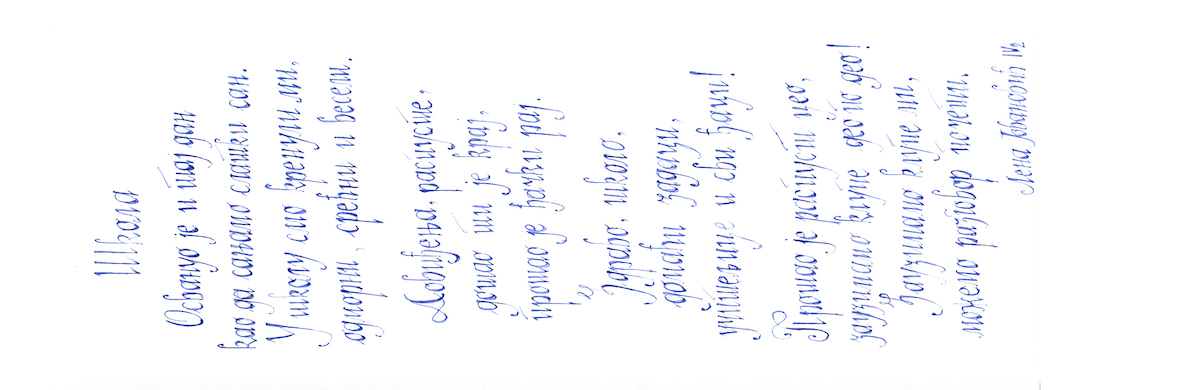 Школа
Освануо је и тај дан
као да сањамо слатки сан.
У школу смо кренули ми,
одморни, срећни и весели.
Довиђења, распусте,
дошао ти је крај,
прошао је ђачки рај.
Здраво, школо,
домаћи задаци,
учитељице и сви ђаци!
Прошао је распуст цео,
заузимамо клупе део по део!
Заузимамо клупе ми,
можемо разговор почети.
Лена Јовановић IV2